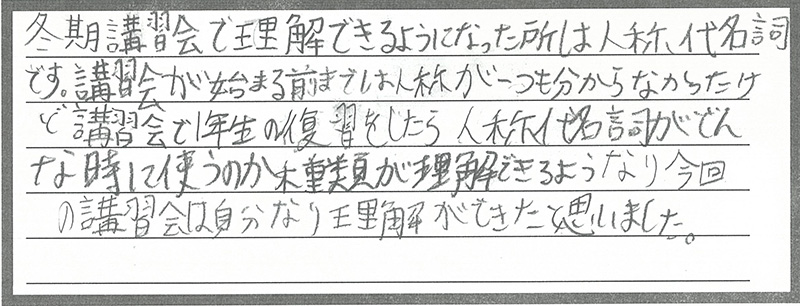 冬期講習会で理解できるようになった所は人称、代名詞
です。講習会が始まる前までは人称が一つも分からなかったけ
ど講習会で1年生の復習をしたら人称代名詞がどん
な時に使うのか種類が理解できるようなり今回
の講習会は自分なり理解ができたと思いました。